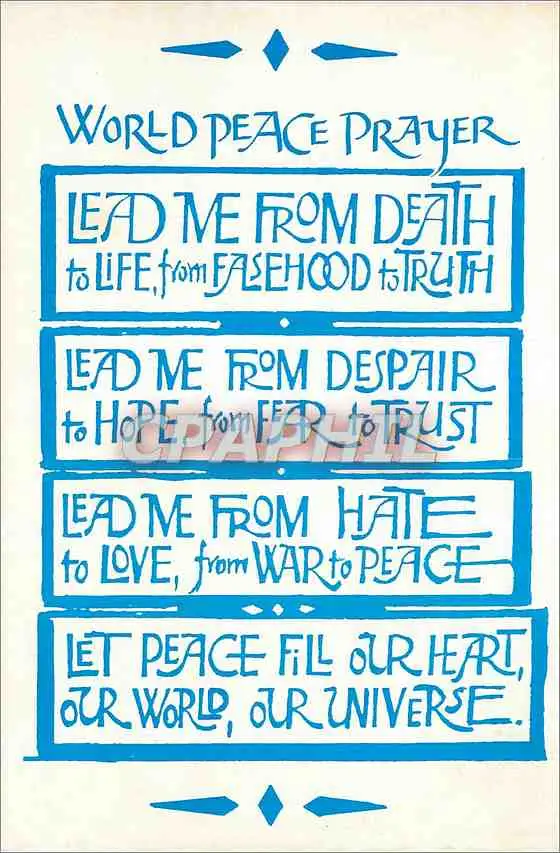 WORLD PEACE PRAYER
LEAD ME FROM DEATH
to LIFE, from FALSEHOOD to TRUTH
LEAD ME FROM DESPAIR
to HOPE from FEAR to TRUST
CPAPHIL
LEAD ME FROM HATE
to LOVE, from WAR to PEACE
LET PEACE FILL OUR HEART,
OUR WORLD, OUR UNIVERSE.